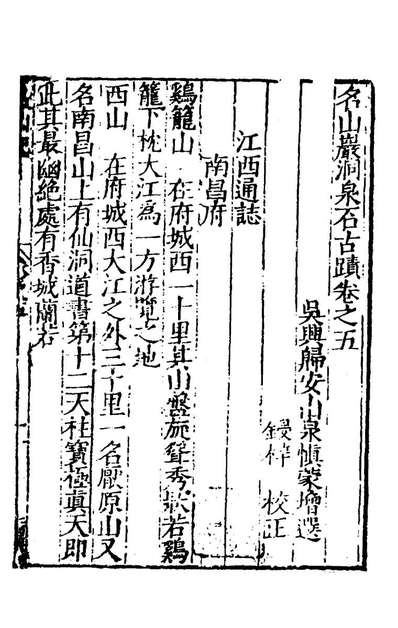 名山巖洞泉石古蹟卷之五
吳興歸安山泉慎蒙增選
鋟梓 校正
江西通誌
南昌府
鷄籠山 在府城西一十里其山盤旋聳秀狀若鷄
籠下枕大江爲一方游覽之地
西山 在府城西大江之外三十里一名厭原山又
名南昌山上有仙洞道書第十二天柱寶極真天即
此其最幽絕處有香城蘭若